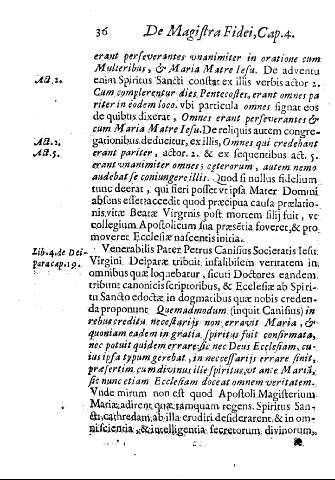 36 De Magistra Fidei, Cap. 4.
erant perseverantes vnanimiter in oratione cum
Mulieribus, & Maria Matre Iesu. De adventu
Act. 2.
enim Spiritus Sancti constat ex illis verbis actor 2.
Cum complerentur dies Pentecostes, erant omnes pa
riter in eodem loco. vbi particula omnes signat eos
de quibus dixerat, Omnes erant perseverantes &
cum Maria Matre Iesu. De reliquis autem congre-
Act. 2.
gationibus deducitur, ex illis, Omnes qui credebant
Act. 5.
erant pariter, actor. 2. & ex sequentibus act. 5.
erant vnanimiter omnes; ceterorum, autem nemo
audebat se coniungere illis. Quod si nullus fidelium
tunc deerat, qui fieri posset vt ipsa Mater Domini
absens esset? accedit quod præcipua causa prælatio-
nis, vitæ Beatæ Virgınis post mortem filij fuit, vt
collegium Apostolicum sua præsẽtia foveret, & pro
moveret Ecclesiæ nascentis initia.
Venerabilis Pater Petrus Canisius Societatis Iesu
Lib. 4. de Dei-
Virgini Deiparæ tribuit infalibilem veritatem in
para cap. 19.
omnibus quæ loquebatur, sicuti Doctores eandem
tribunt canonicis scriptoribus, & Ecclesiæ ab Spiri-
tu Sancto edoctæ in dogmatibus quæ nobis creden-
da proponunt Quemadmodum (inquit Canisius) in
rebus creditu necessarijs non erravit Maria, &
quoniam eadem in gratia spiritus fuit confirmata,
nec potuit quidem errare sic nec Deus Ecclesiam, cu-
ius ipsa typum gerebat, in neccessarijs errare sinit,
præsertim cum divinus ille spiritus, vt ante Mariã,
sic nunc etiam Ecclesiam doceat omnem veritatem.
Vnde mirum non est quod Apostoli Magisterium
Mariæ adirent quæ tamquam regens Spiritus San-
cti cathedram, ab illa erudiri desiderarent, & in om-
niscientia, & intelligentia secretorum divinorum,